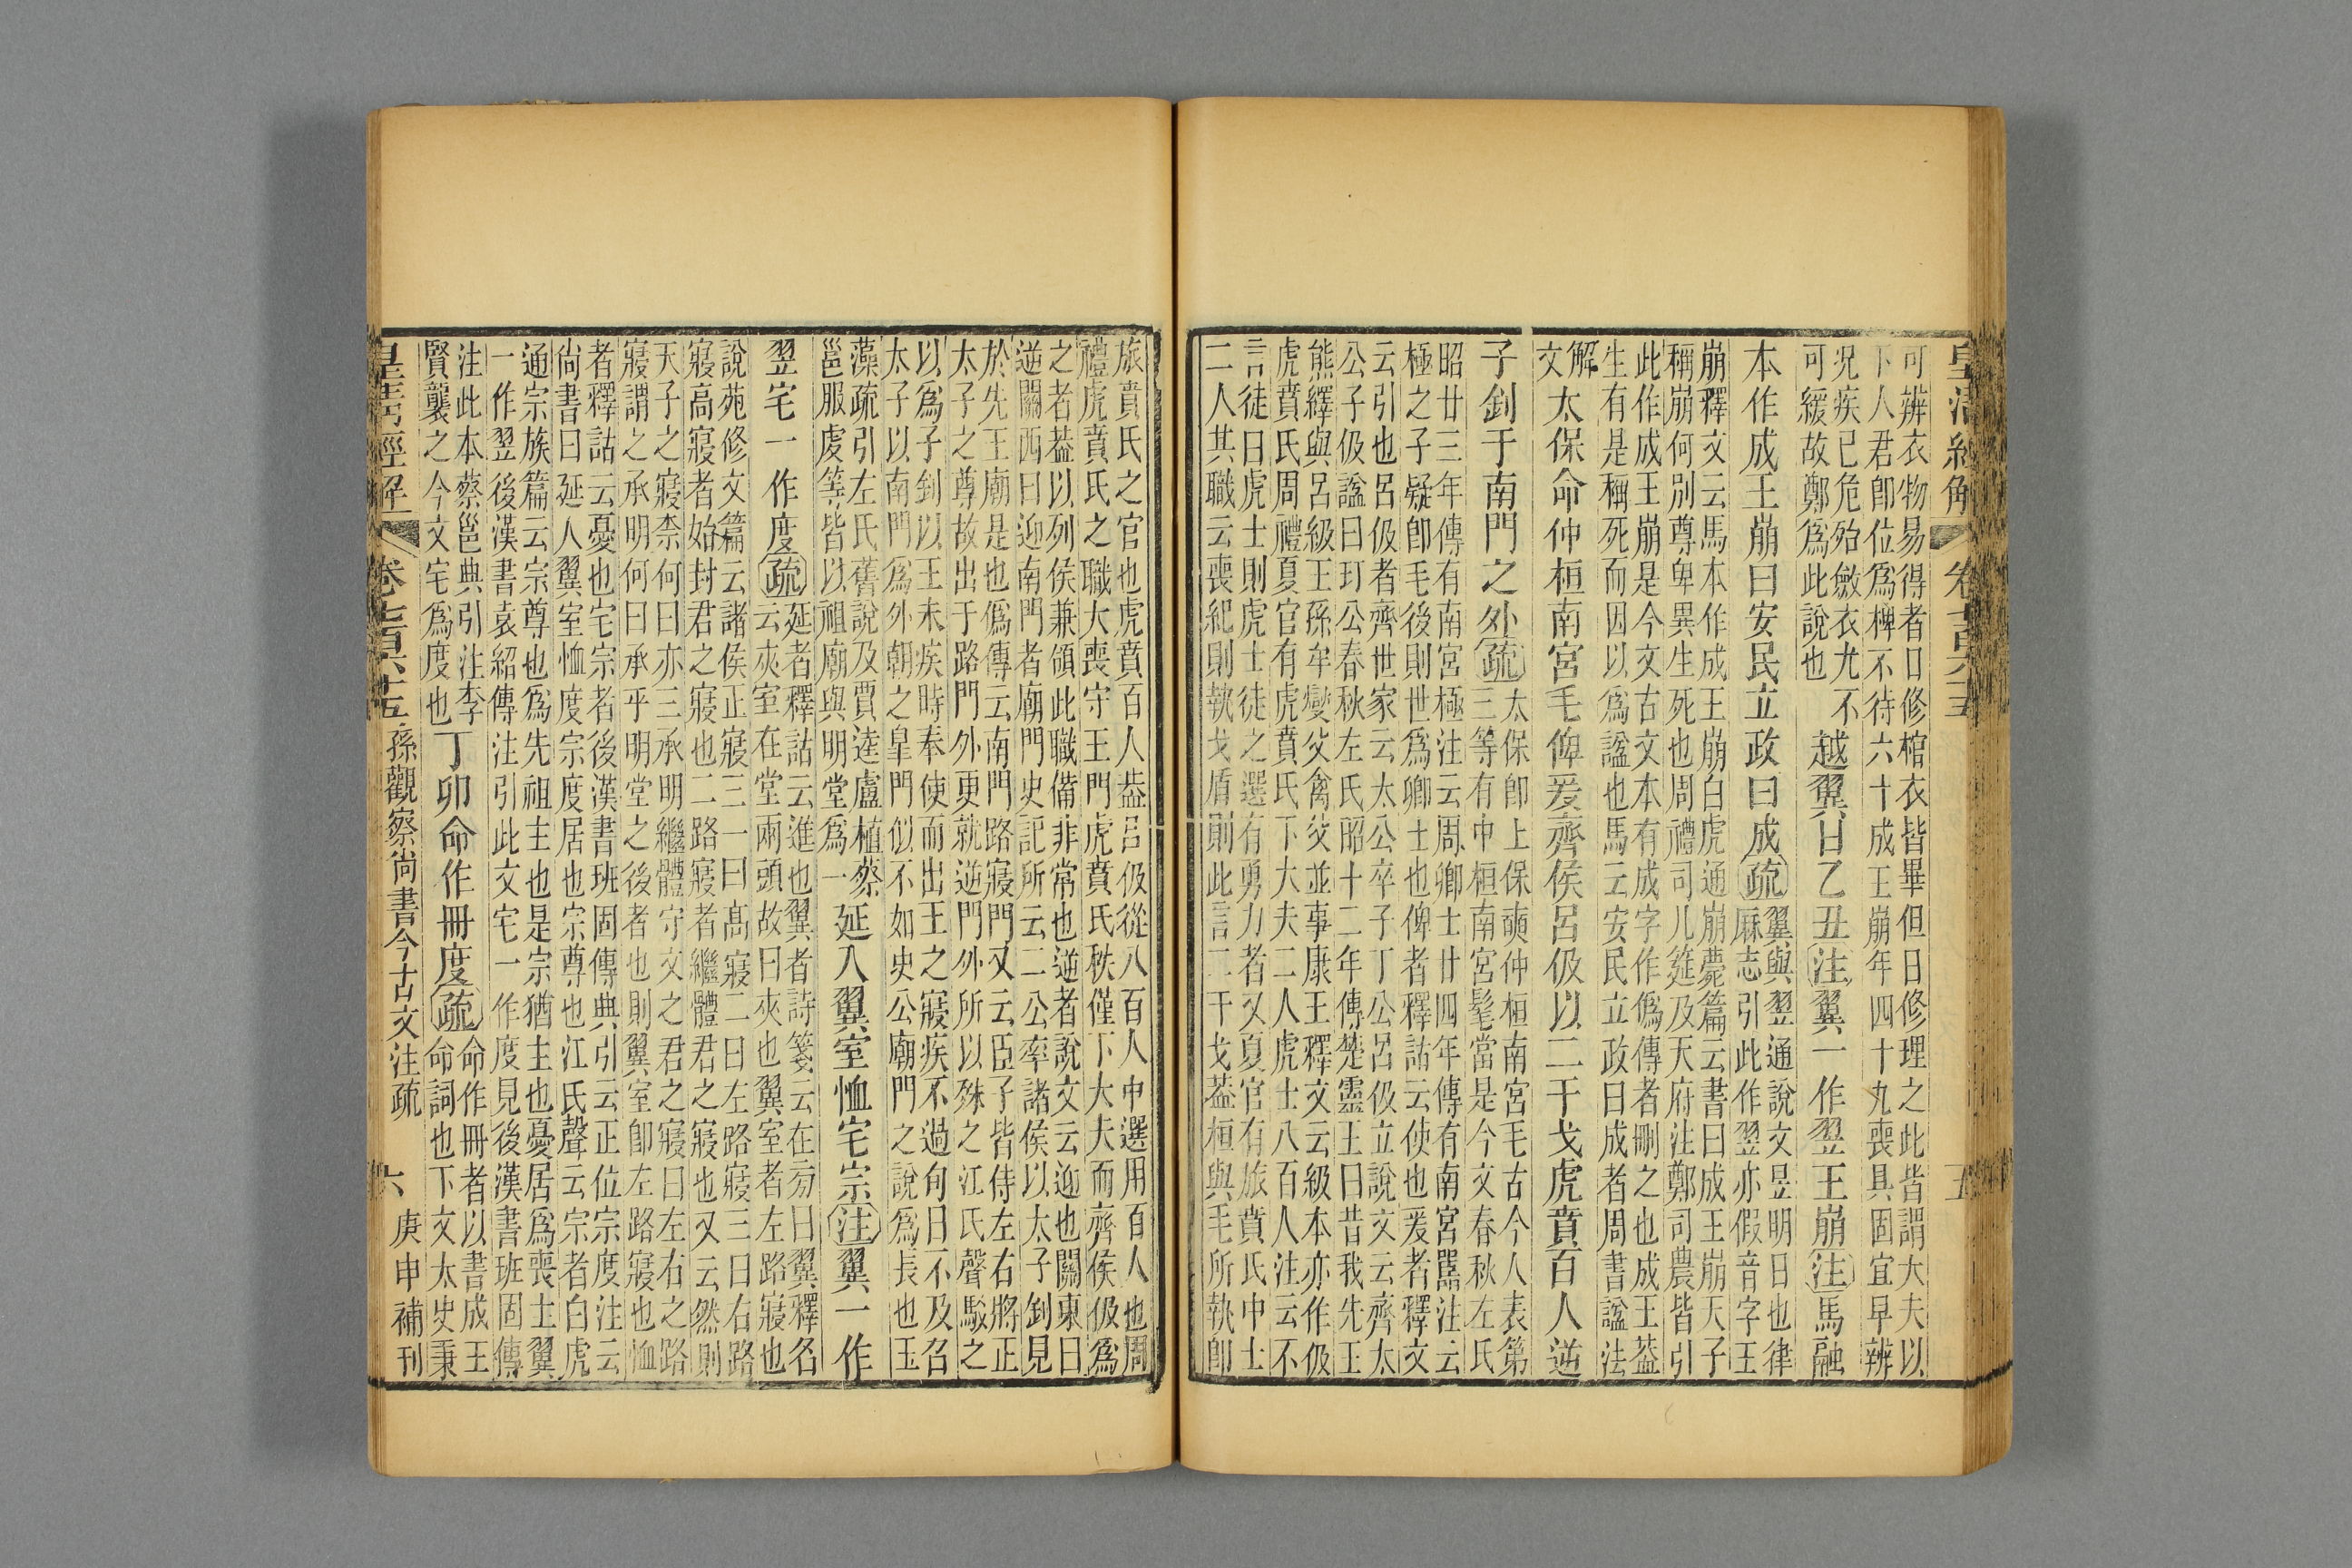 皇清經解 卷七百六十五 五
可辨衣物易得者日修棺衣皆畢但日修理之此皆謂大夫以
下人君卽位爲椑不待六十成王崩年四十九喪具固宜早辨
況疾已危殆斂衣尤不
可緩故鄭爲此說也
越翼日乙丑注翼一作翌王崩注馬融
本作成王崩曰安民立政曰成疏
翼與翌通說文昱明日也律
麻志引此作翌亦假音字王
崩釋文云馬本作成王崩白虎通崩薨篇云書曰成王崩天子
稱崩何別尊卑異生死也周禮司几筵及天府注鄭司農皆引
此作成王崩是今文古文本有成字作僞傳者刪之也成王葢
生有是稱死而因以爲諡也馬云安民立政曰成者周書諡法
解
文
太保命仲桓南宮毛俾爰齊侯呂伋以二干戈虎賁百人逆
子釗于南門之外疏
太保卽上保奭仲桓南宮毛古今人表第
三等有中桓南宮髦當是今文春秋左氏
昭廿三年傳有南宮極注云周卿士廿四年傳有南宮嚚注云
極之子疑卽毛後則世爲卿士也俾者釋詁云使也爰者釋文
云引也呂伋者齊世家云太公卒子丁公呂伋立說文云齊太
公子伋諡曰玎公春秋左氏昭十二年傳楚靈王曰昔我先王
熊繹與呂級王孫牟燮父禽父並事康王釋文云級本亦作伋
虎賁氏周禮夏官有虎賁氏下大夫二人虎士八百人注云不
言徒曰虎士則虎士徒之選有勇力者又夏官有旅賁氏中士
二人其職云喪紀則執戈盾則此言二干戈葢桓與毛所執卽
旅賁氏之官也虎賁百人葢呂伋從八百人中選用百人也周
禮虎賁氏之職大喪守王門虎賁氏秩僅下大夫而齊侯伋爲
之者葢以列侯兼領此職備非常也逆者說文云迎也關東曰
逆關西曰迎南門者廟門史記所云二公率諸侯以太子釗見
於先王廟是也僞傳云南門路寢門又云臣子皆侍左右將正
太子之尊故出于路門外更就逆門外所以殊之江氏聲駁之
以爲子釗以王未疾時奉使而出王之寢疾不過旬日不及召
太子以南門爲外朝之皐門似不如史公廟門之說爲長也玉
藻疏引左氏舊說及賈逵盧植蔡
邕服虔等皆以祖廟與明堂爲一
延入翼室恤宅宗注翼一作
翌宅一作度疏
延者釋詁云進也翼者詩箋云在㫄曰翼釋名
云夾室在堂兩頭故曰夾也翼室者左路寢也
說苑修文篇云諸侯正寢三一曰髙寢二曰左路寢三曰右路
寢高寢者始封君之寢也二路寢者繼體君之寢也又云然則
天子之寢柰何曰亦三承明繼體守文之君之寢曰左右之路
寢謂之承明何曰承乎明堂之後者也則翼室卽左路寢也恤
者釋詁云憂也宅宗者後漢書班固傳典引云正位宗度注云
尙書曰延入翼室恤度宗度居也宗尊也江氏聲云宗者白虎
通宗族篇云宗尊也爲先祖主也是宗猶主也憂居爲喪士翼
一作翌後漢書袁紹傳注引此文宅一作度見後漢書班固傳
注此本蔡邕典引注李
賢襲之今文宅爲度也
丁卯命作冊度疏
命作冊者以書成王
命詞也下文太史秉
皇清經解 卷七百六十五 孫觀察尙書今古文注疏 六 庚申補刊